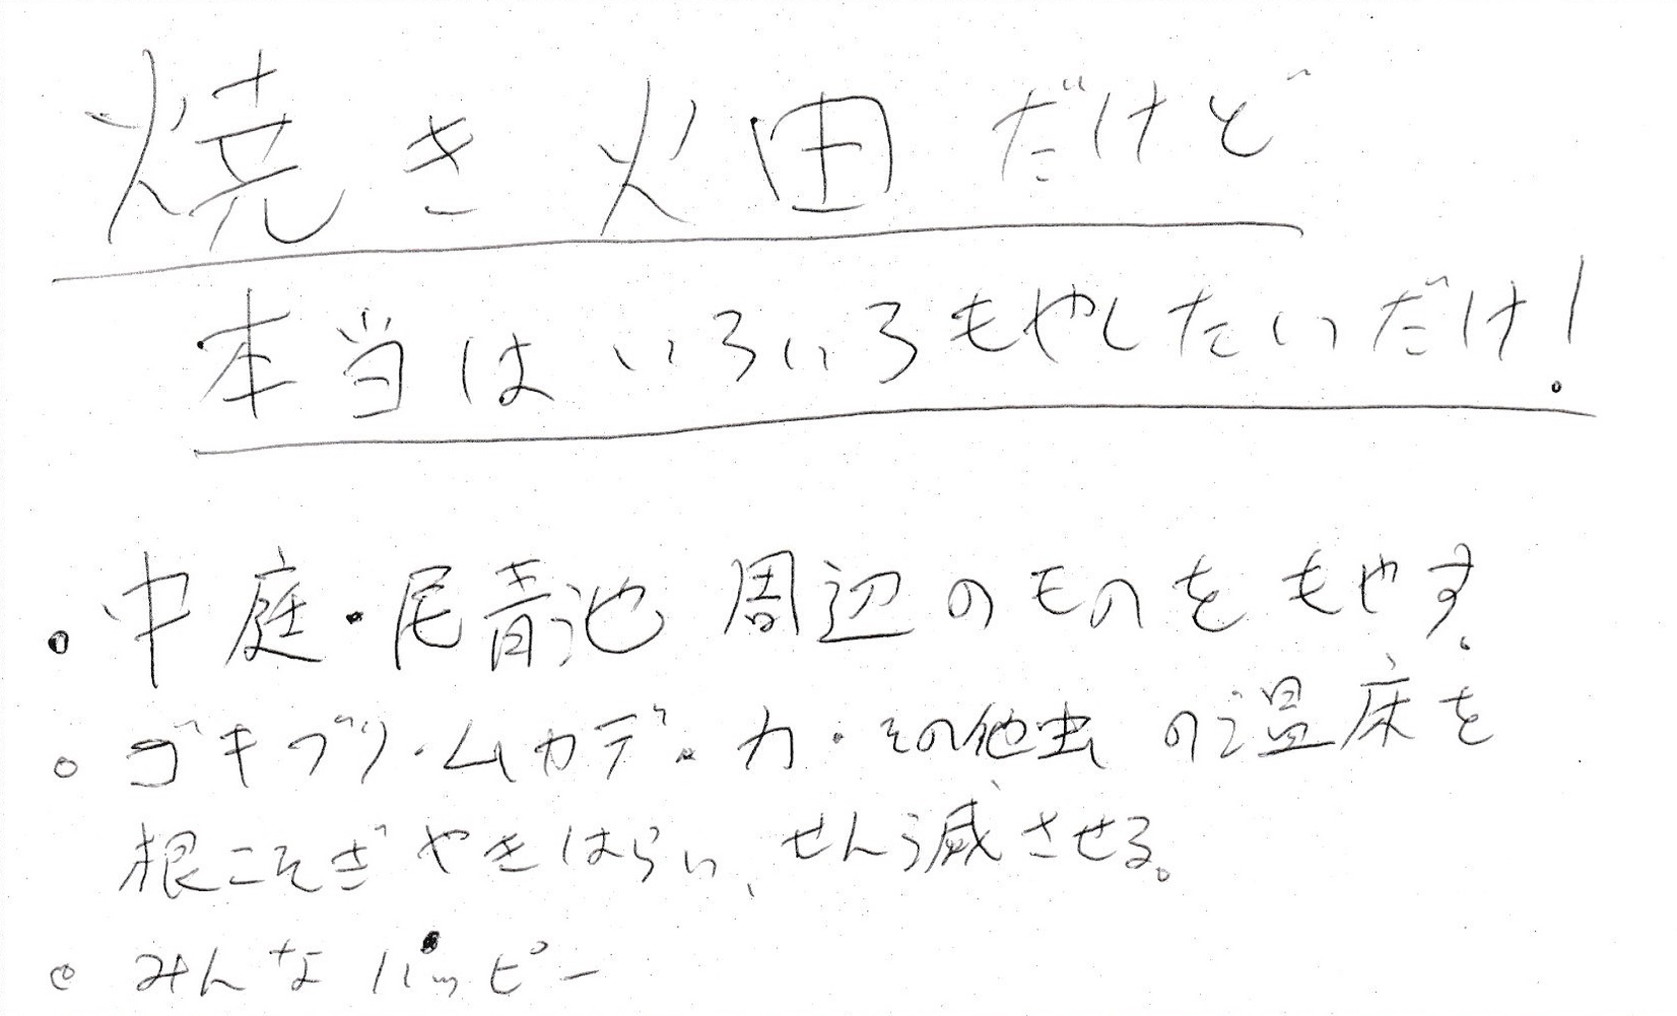 焼き畑だけど
本当はいろいろもやしたいだけ!
・中庭・尾青池 周辺のものをもやす。
・ゴキブリ・ムカデ・カ・その他虫の温床を
根こそぎやきはらい、せん滅させる。
・みんなハッピー